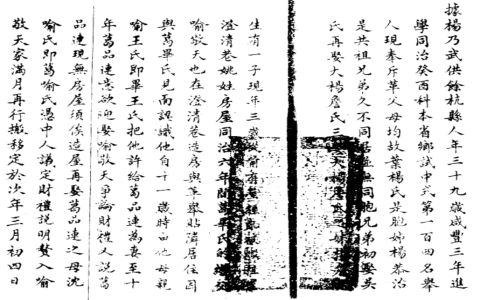 據楊乃武供餘杭縣人年三十九歲咸豐三年進
學同治癸酉科本省鄉試中式第一百四名舉
人現奉斥革父母均故葉楊氏是胞姊楊恭治
是共祖兄弟久不同居並無同胞兄弟初娶吳
氏再娶大楊詹氏三娶
生有一子現年三歲
澄清巷姚姓房屋同治六年間葛畢氏
喻敬天也在澄清巷造房與革舉貼隣居住因
與葛畢氏見面認識他自十一歲時由他母親
喻王氏即畢王氏把他許給葛品連為妻至十
年葛品連急欲迎娶喻敬天爭論財禮人說葛
品連現無房屋須俟造屋再娶葛品連之母沈
喻氏即葛喻氏憑中人議定財禮說明贅入喻
敬天家滿月再行搬移定於次年三月初四日